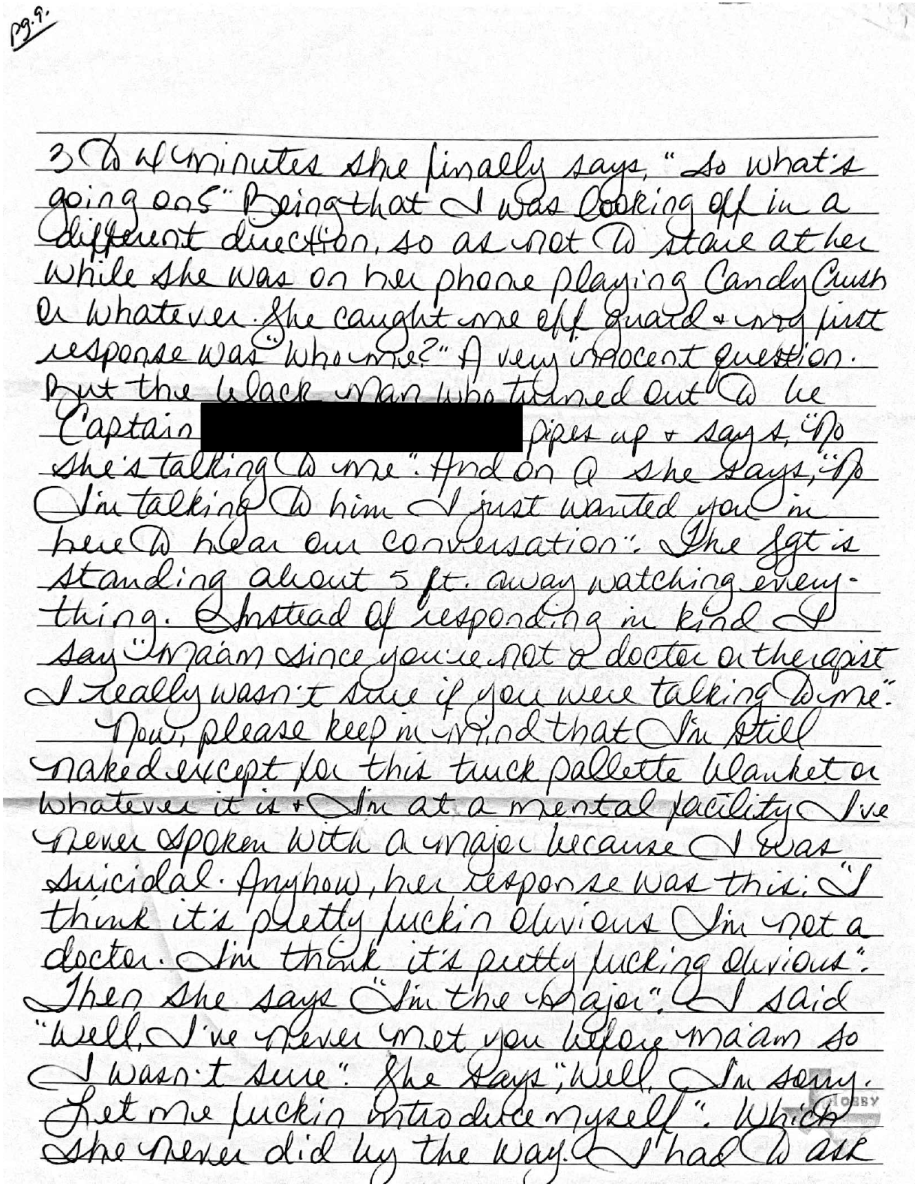 pg. 9.
3 to 4 minutes she finally says, "So what's
going on?" Being that I was looking off in a
different direction, so as not to stare at her
while she was on her phone playing Candy Crush
or whatever. She caught me off guard & my first
response was "who me?" A very innocent question.
But the black man who turned out to be
Captain pipes up & says, "No
she's talking to me". And on Q she says, "No
I'm talking to him I just wanted you in
here to hear our conversation". The Sgt is
standing about 5 ft. away watching every-
thing. Instead of responding in kind I
say "ma'am since you're not a doctor or therapist
I really wasn't sure if you were talking to me".
Now, please keep in mind that I'm still
naked except for this truck pallette blanket or
whatever it is & I'm at a mental facility I've
never spoken with a major because I was
suicidal. Anyhow, her response was this: "I
think it's pretty fuckin obvious I'm not a
doctor. I'm think it's pretty fucking obvious".
Then she says "I'm the Major". I said
"Well, I've never met you before ma'am so
I wasn't sure". She says, "Well, I'm sorry.
Let me fuckin introduce myself". Which
she never did by the way. I had to ask
LOBBY